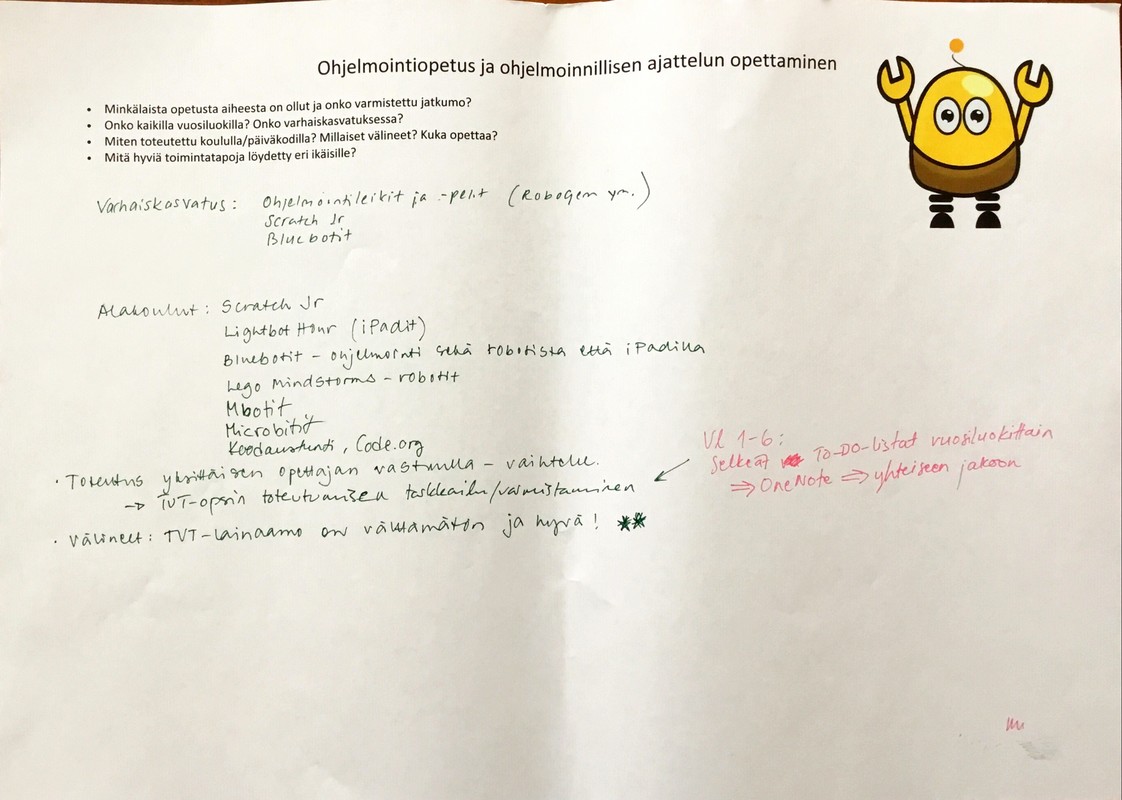 Ohjelmointiopetus ja ohjelmoinnillisen ajattelun opettaminen
• Minkälaista opetusta aiheesta on ollut ja onko varmistettu jatkumo?
• Onko kaikilla vuosiluokilla? Onko varhaiskasvatuksessa?
• Miten toteutettu koululla/päiväkodilla? Millaiset välineet? Kuka opettaa?
• Mitä hyviä toimintatapoja löydetty eri ikäisille?
Varhaiskasvatus: Ohjelmointileikit ja -pelit (Robogem ym.)
Scratch Jr
Bluebotit
Alakoulut: Scratch Jr
Lightbot Hour (iPadit)
Bluebotit - ohjelmointi sekä robotista että iPadilla
Lego Mindstorms - robotit
Mbotit
Microbitit
Koodaustunti, Code.org
• Toteutus yksittäisen opettajan vastuulla - vaihtelu.
→ TVT-opsin toteutumisen tarkkailu/varmistaminen
Vl 1-6:
Selkeät To-DO-listat vuosiluokittain
⇒ OneNote ⇒ yhteiseen jakoon
• Välineet: TVT-lainaamo on välttämätön ja hyvä! **